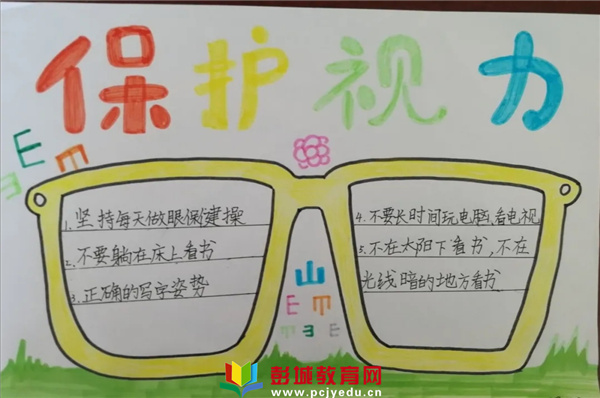 保护视力
E
E
E
1. 坚持每天做眼保健操
2. 不要躺在床上看书
3. 正确的写字姿势
4. 不要长时间玩电脑、看电视
5. 不在太阳下看书,不在
光线暗的地方看书
山
E m
E 3 E
彭城教育网
www.pcjyedu.cn